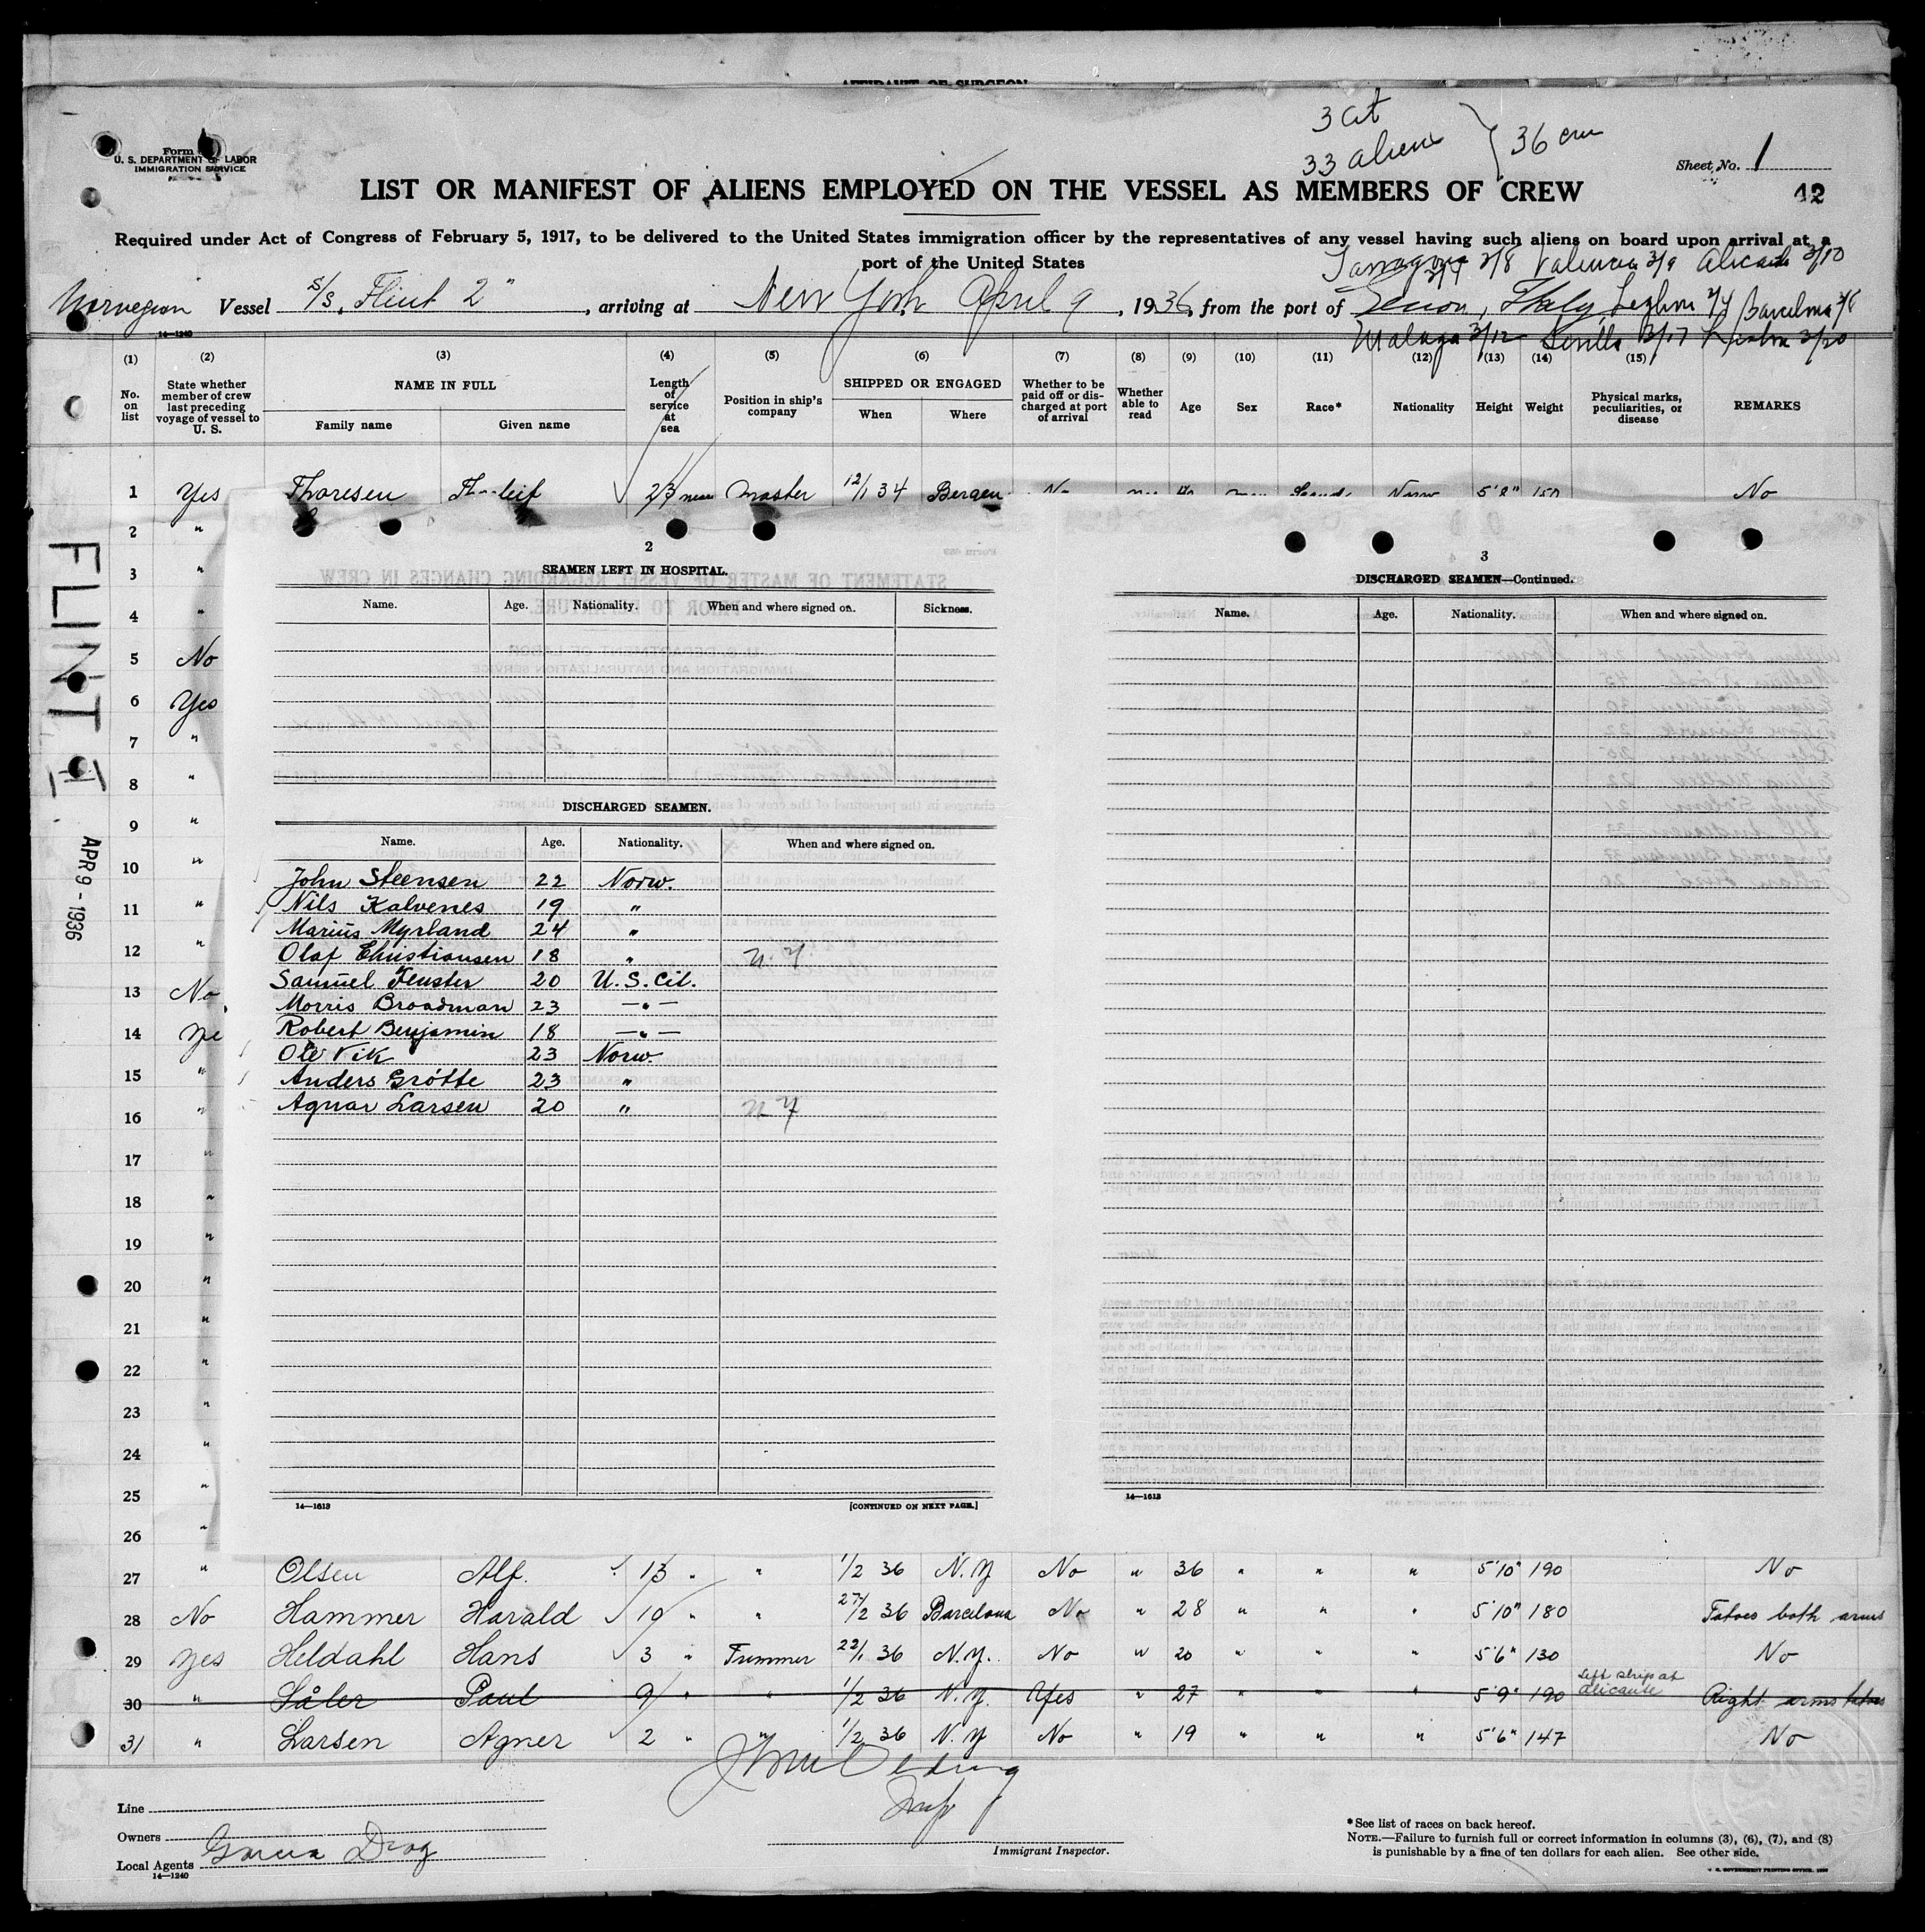 AFFIDAVIT OF SURGEON
3 cit
33 aliens
36 crew
Form
U. S. DEPARTMENT OF LABOR
IMMIGRATION SERVICE
Sheet No. 1
LIST OR MANIFEST OF ALIENS EMPLOYED ON THE VESSEL AS MEMBERS OF CREW
42
Required under Act of Congress of February 5, 1917, to be delivered to the United States immigration officer by the representatives of any vessel having such aliens on board upon arrival at a
port of the United States
Tarragona 3/8 Valencia 3/9 Alicante 3/10
Norwegian Vessel S/S. Flint 2", arriving at New York April 9, 1936, from the port of Genoa, Italy, Leghorn Barcelona
Malaga 3/12 Sevilla 3/17 Lisbon 3/20
14—1240
(1) (2) (3) (4) (5) (6) (7) (8) (9) (10) (11) (12) (13) (14) (15)
No. on list
State whether member of crew last preceding voyage of vessel to U. S.
NAME IN FULL
Family name Given name
Length of service at sea
Position in ship's company
SHIPPED OR ENGAGED
When Where
Whether to be paid off or discharged at port of arrival
Whether able to read
Age Sex Race* Nationality Height Weight
Physical marks, peculiarities, or disease
REMARKS
1 Yes Thoresen Thorleif 23 Master 12/1 34 Bergen No Norw 5'8" 150 No
2 "
3 "
4 "
5 No
6 Yes
7 "
8 "
9 "
10 "
11 "
12 "
13 No
14 Ye
15 "
16 "
17 "
18 "
19 "
20 "
21 "
22 "
23 "
24 "
25 "
26 "
FLINT II
APR 9 - 1936
2
SEAMEN LEFT IN HOSPITAL.
Name. Age. Nationality. When and where signed on. Sickness.
DISCHARGED SEAMEN.
Name. Age. Nationality. When and where signed on.
John Steensen 22 Norw.
Nils Kalvenes 19 "
Marius Myrland 24 "
Olaf Christiansen 18 " N.Y.
Samuel Fenster 20 U.S. Cit.
Morris Broadman 23 —"—
Robert Benjamin 18 —"—
Ole Vik 23 Norw.
Anders Grótte 23 "
Agnar Larsen 20 " N.Y
14—1613 [CONTINUED ON NEXT PAGE.]
3
DISCHARGED SEAMEN—Continued.
Name. Age. Nationality. When and where signed on.
14—1613
27 " Olsen Alf. 13 " " 1/2 36 N.Y No " 36 " " " 5'10" 190 No
28 No Hammer Harald 10 " " 27/2 36 Barcelona No " 28 " " " 5'10" 180 Tatoes both arms
29 Yes Heldahl Hans 3 " Trimmer 22/1 36 N.Y. No " 20 " " " 5'6" 130 No
30 " Såler Paul 9 " " 1/2 36 N.Y. Yes " 27 " " " 5'9" 190 left ship at Alicante Right arms tatoes
31 " Larsen Agner 2 " " 1/2 36 N.Y No " 19 " " " 5'6" 147 No
Line
Owners
Local Agents Garcia Diaz
14—1240
Insp
Immigrant Inspector.
*See list of races on back hereof.
NOTE.—Failure to furnish full or correct information in columns (3), (6), (7), and (8)
is punishable by a fine of ten dollars for each alien. See other side.
U. S. GOVERNMENT PRINTING OFFICE